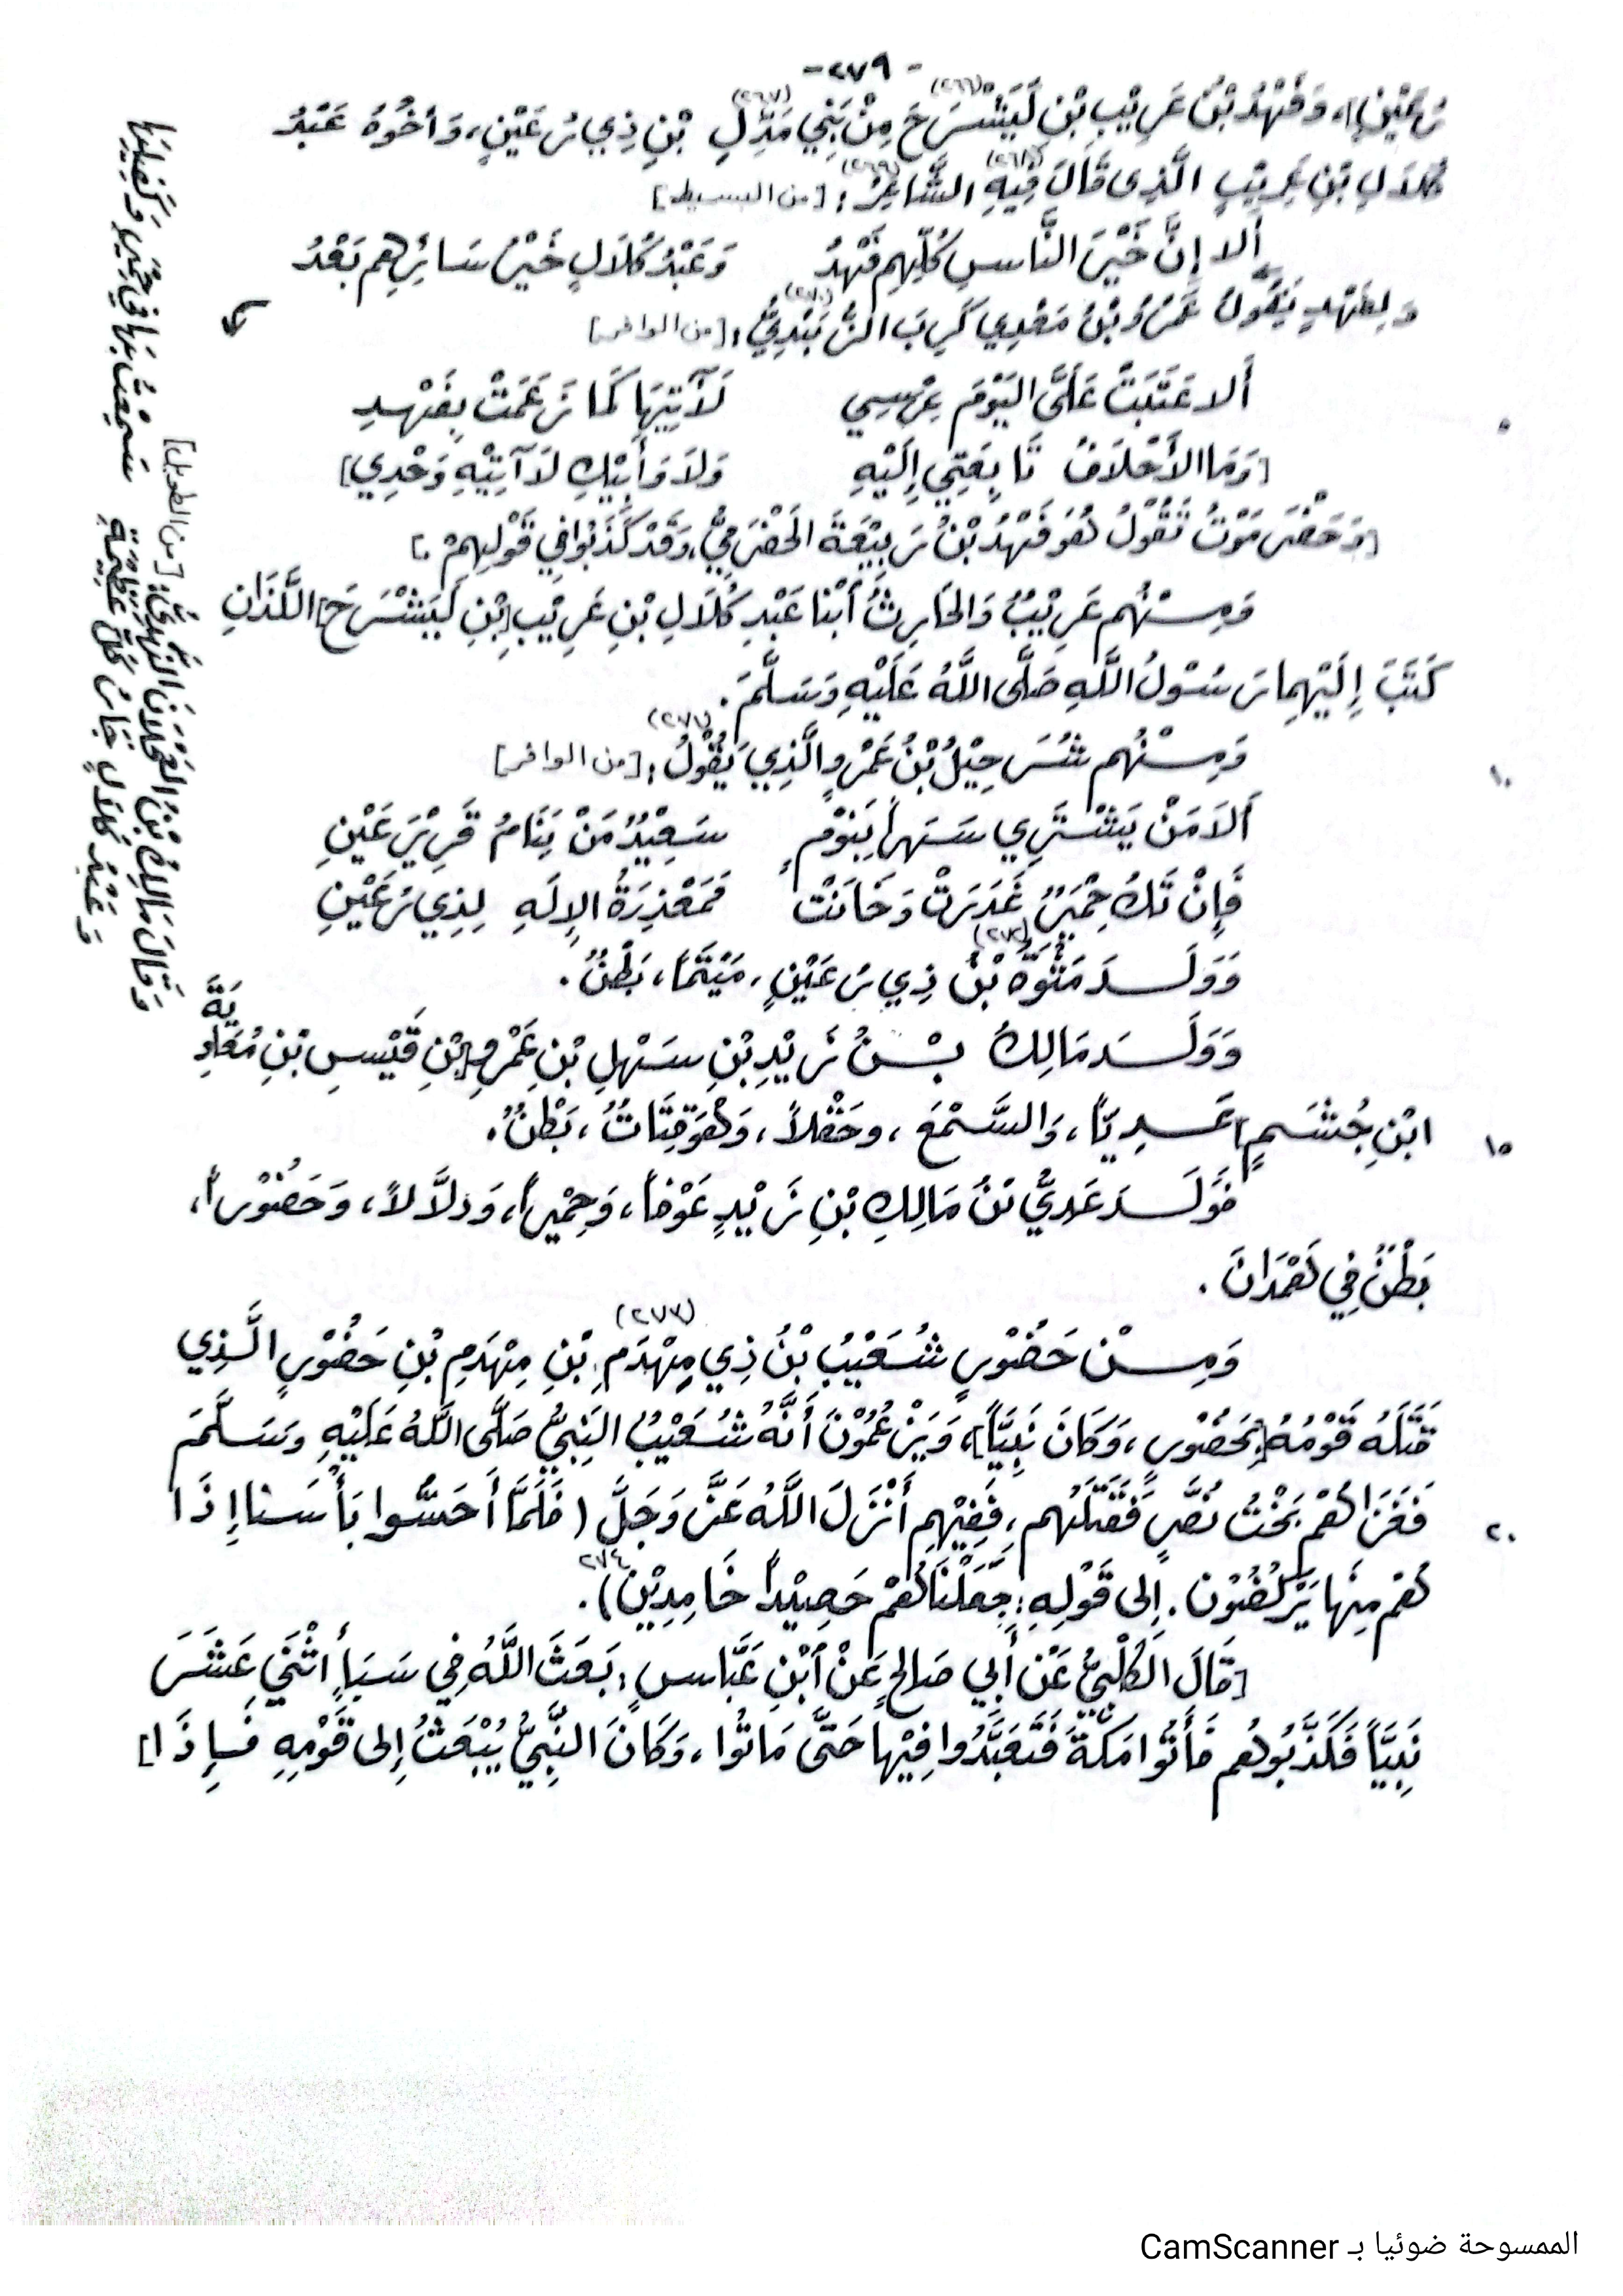 -٢٧٩-
رُعَيْنٍ]، وَفَهْدُ بْنُ عَرِيْبِ بْنِ لَيَشْرَحَ (٢٦٦) مِنْ بَنِي مَدِّلِ (٢٦٧) بْنِ ذِي رُعَيْنٍ، وَأَخُوهُ عَبْدُ
كُلَالِ بْنِ عَرِيْبٍ الَّذِي قَالَ فِيْهِ (٢٦٨) الشَّاعِرُ (٢٦٩): [من البسيط]
أَلا إِنَّ خَيْرَ النَّاسِ كُلِّهِمِ فَهْدُ وَعَبْدُ كُلَالٍ خَيْرُ سَائِرِهِم بَعْدُ
وَلِفَهْدٍ يَقُولُ عَمْرُو بْنُ مَعْدِي كَرِبَ الزُّبَيْدِيُّ (٢٧٠): [من الوافر]
٥ أَلا عَتَبَتْ عَلَيَّ اليَوْمَ عِرْسِي لَآتِيَهَا كَمَا زَعَمَتْ بِفَهْدِ
[وَمَا الأَحْلَافُ تَابِعَتِي إِلَيْهِ وَلَا وَأَبِيْكِ لَا آتِيْهِ وَحْدِي]
[وَحَضْرَمَوْتُ تَقُولُ هُوَ فَهْدُ بْنُ رَبِيْعَةَ الحَضْرَمِيُّ، وَقَدْ كَذَبُوا فِي قَوْلِهِمْ.]
وَمِنْهُم عَرِيْبٌ وَالحَارِثُ أَبْنَا عَبْدِ كُلَالِ بْنِ عَرِيْبِ [بْنِ لَيَشْرَحَ] اللَّذَانِ
كَتَبَ إِلَيْهِمَا رَسُولُ اللَّهِ صَلَّى اللَّهُ عَلَيْهِ وَسَلَّمَ.
١٠ وَمِنْهُم شُرَحِيْلُ بْنُ عَمْرٍو الَّذِي يَقُوْلُ (٢٧١): [من الوافر]
أَلَا مَنْ يَشْتَرِي سَهَراً بِنَوْمٍ سَعِيْدٌ مَنْ يَنَامُ قَرِيْرَ عَيْنِ
فَإِنْ تَكُ حِمْيَرٌ غَدَرَتْ وَخَانَتْ فَمَعْذِرَةُ الإِلَهِ لِذِي رُعَيْنِ
وَوَلَدَ مَثُوَّهُ (٢٧٢) بْنُ ذِي رُعَيْنٍ، مَيْتَماً، بَطْنٌ.
وَوَلَدَ مَالِكُ بْنُ زَيْدِ بْنِ سَهْلِ بْنِ عَمْرِو [بْنِ قَيْسِ بْنِ مُعَاوِيَةَ
١٥ ابْنِ جُشَمٍ] عَدِيّاً، وَالسَّمْعَ، وَحَفْلاً، وَهُوَ قِتَابٌ، بَطْنٌ.
فَوَلَدَ عَدِيُّ بْنُ مَالِكِ بْنِ زَيْدٍ عَوْفاً، وَحِمْيَراً، وَدَلَّالاً، وَحَضُوْراً،
بَطْنٌ فِي هَمْدَانَ.
وَمِنْ حَضُوْرٍ شُعَيْبُ بْنُ ذِي مِهْدَمِ (٢٧٣) بْنِ مِهْدَمِ بْنِ حَضُوْرٍ الَّذِي
قَتَلَهُ قَوْمُهُ [بِحَضُوْرٍ، وَكَانَ نَبِيّاً]، وَيَزْعُمُوْنَ أَنَّهُ شُعَيْبُ النَّبِيُّ صَلَّى اللَّهُ عَلَيْهِ وَسَلَّمَ
٢٠ فَغَزَاهُمْ بَخْتُ نَصَّرٍ فَقَتَلَهُم، فَفِيْهِم أَنْزَلَ اللَّهُ عَزَّ وَجَلَّ (فَلَمَّا أَحَسُّوا بَأْسَنا إِذَا
هُمْ مِنْهَا يَرْكُضُوْن. إِلى قَوْلِهِ: جَعَلْنَاهُمْ حَصِيْداً خَامِدِيْنَ) ٢٧٤.
[قَالَ الكَلْبِيُّ عَنْ أَبِي صَالِحٍ عَنْ ابْنِ عَبَّاسٍ: بَعَثَ اللَّهُ فِي سَبَأٍ أثْنَي عَشَرَ
نَبِيَّاً فَكَذَّبُوهُم فَأَتُوا مَكَةَ فَتَعَبَّدُوا فِيْها حَتَّى مَاتُوا، وَكَانَ النَّبِيُّ يُبْعَثُ إِلى قَوْمِهِ فَإِذَا]
وَقَالَ مَالِكُ بْنُ العَجْلَانَ النَّهْدِيُّ: [من الطويل]
سَمِعْتُ بِهَا فِي حِمْيَرٍ وَكَفَيْلِهَا
وَعَبْدُ كُلَالٍ جَارُ كُلِّ عَظِيْمَةٍ
الممسوحة ضوئيا بـ CamScanner